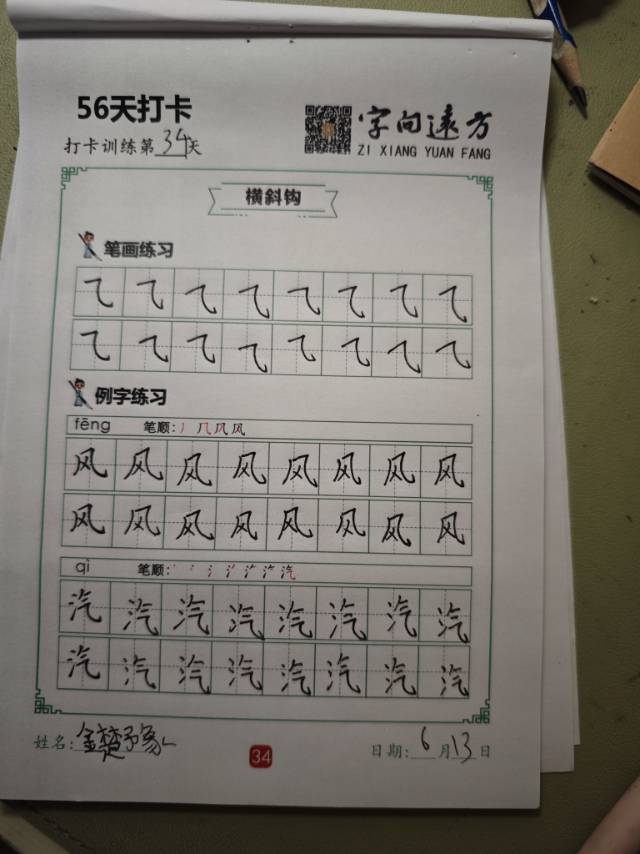 56天打卡
字向远方
打卡训练第34天
ZI XIANG YUAN FANG
横斜钩
笔画练习
⺄⺄⺄⺄⺄⺄⺄⺄
⺄⺄⺄⺄⺄⺄⺄⺄
例字练习
fēng 笔顺:丿几风风
风风风风风风风风
风风风风风风风风
qì 笔顺:
汽汽汽汽汽汽汽汽
汽汽汽汽汽汽汽汽
姓名:金楚予
34
日期:6月13日